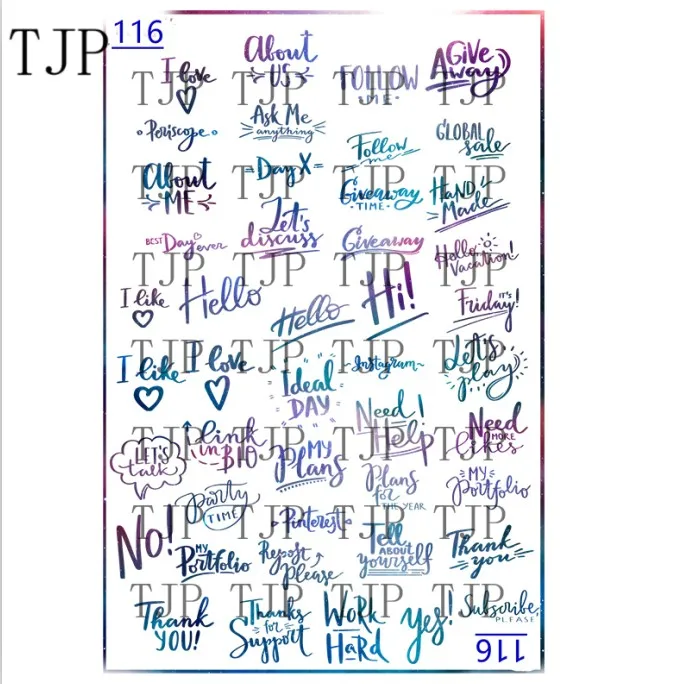 TJP
116
I love
About
US
FOLLOW
ME
A GiVe
away
Periscope
Ask Me
anything
Follow
me
GLOBAL
sale
About
ME
Day X
Giveaway
TIME
HaND
Made
BEST Day ever
Let's
discuss
Giveaway
Hello
Vacation!
I like
Hello
Hello
Hi!
IT'S
Friday!
I like
I love
Ideal
DAY
Instagram
Let's
play
LET'S
talk
link
in BIO
My
Plans
Need
Help!
Need
MORE
likes
Party
TIME
Plans
for
THE YEAR
MY
Portfolio
No!
MY
Portfolio
Pinterest
Repost
Please
Tell
ABOUT
yourself
Thank
you
Thank
YOU!
Thanks
for
Support
WoRK
HaRd
yes!
Subscribe
PLEASE
116
TJP TJP TJP TJP
TJP TJP TJP TJP
TJP TJP TJP TJP
TJP TJP TJP TJP
TJP TJP TJP TJP
TJP TJP TJP TJP
TJP TJP TJP TJP